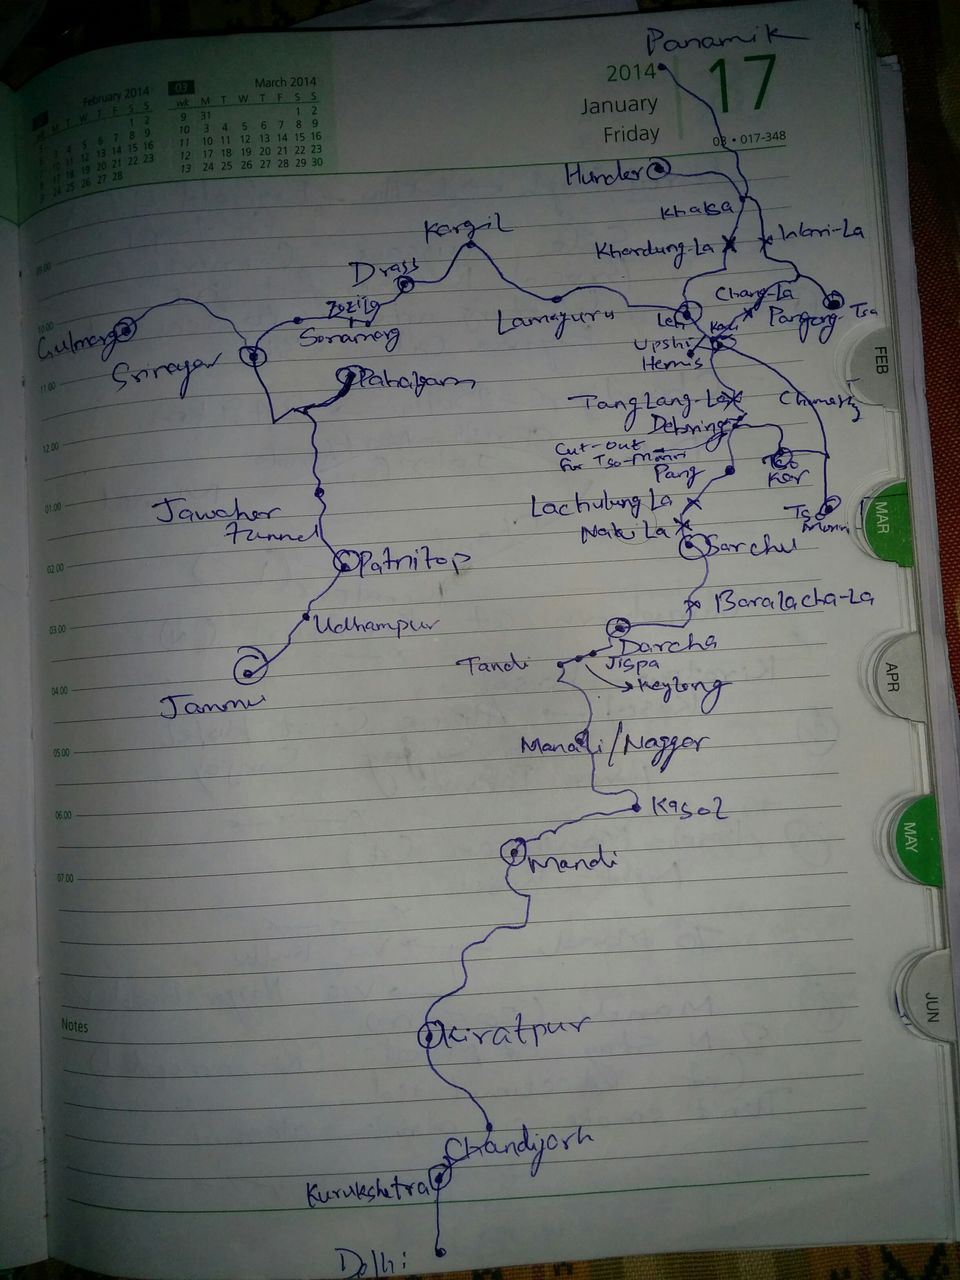 Panamik
February 2014
M T W T F S S
1 2
3 4 5 6 7 8 9
10 11 12 13 14 15 16
17 18 19 20 21 22 23
24 25 26 27 28
03 March 2014
wk M T W T F S S
9 31 1 2
10 3 4 5 6 7 8 9
11 10 11 12 13 14 15 16
12 17 18 19 20 21 22 23
13 24 25 26 27 28 29 30
2014
January
Friday
17
03 • 017-348
Hunder
Khalsa
Khardung-La
Wari-La
Kargil
Drass
Zozila
Sonamarg
Gulmarg
Srinagar
Pahalgam
Lamayuru
Leh
Chang-La
Pangong Tso
Karu
Upshi
Hemis
TangLang-La
Chumathang
Debring
Cut-out
for Tso-Moriri
Pang
Tso
Kar
Tso
Moriri
Lachulung La
Naki La
Sarchu
Jawaher
Tunnel
Patnitop
Udhampur
Jammu
Baralacha-La
Darcha
Jispa
Tandi
Keylong
Manali/Naggar
Kasol
Mandi
Kiratpur
Chandigarh
Kurukshetra
Delhi
09.00
10.00
11.00
12.00
01.00
02.00
03.00
04.00
05.00
06.00
07.00
Notes
FEB
MAR
APR
MAY
JUN